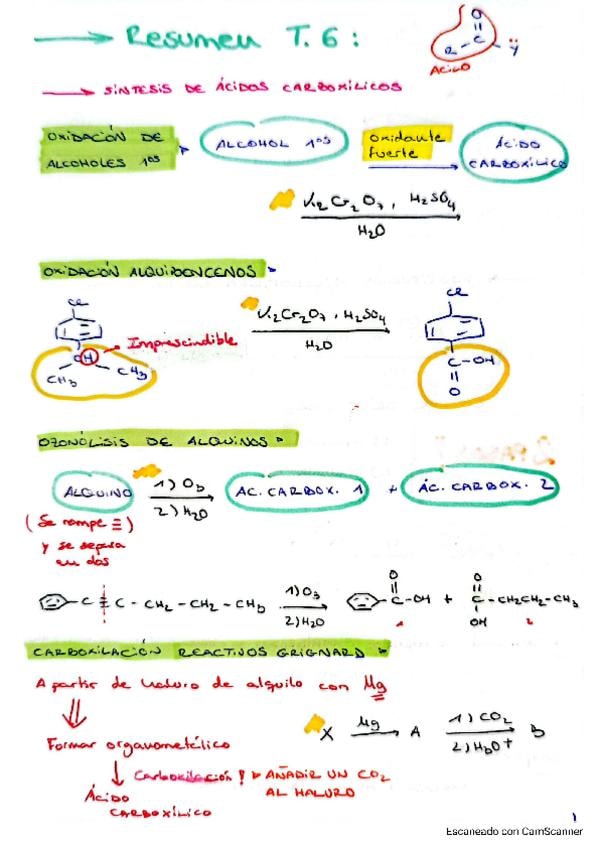 Resumen T.6:
O
R - C - Ÿ
ACILO
SÍNTESIS DE ÁCIDOS CARBOXÍLICOS
OXIDACIÓN DE
ALCOHOLES 1ºs
ALCOHOL 1ºs
Oxidante
fuerte
ÁCIDO
CARBOXÍLICO
K2Cr2O7, H2SO4
H2O
OXIDACIÓN ALQUILBENCENOS
Cl
CH
Imprescindible
CH3
CH3
K2Cr2O7, H2SO4
H2O
Cl
C-OH
O
OZONÓLISIS DE ALQUINOS
ALQUINO
1) O3
2) H2O
AC. CARBOX. 1
+
ÁC. CARBOX. 2
(Se rompe ≡)
y se separa
en dos
C ≡ C - CH2 - CH2 - CH3
1) O3
2) H2O
O
C-OH
1
+
O
C-CH2CH2-CH3
OH
2
CARBOXILACIÓN REACTIVOS GRIGNARD
A partir de haluro de alquilo con Mg
Formar organometálico
Carboxilación! AÑADIR UN CO2
AL HALURO
Ácido
CARBOXÍLICO
X
Mg
A
1) CO2
2) H3O+
B
1
Escaneado con CamScanner